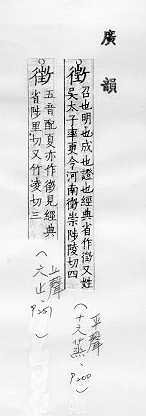 廣韻
徵 召也明也成也證也經典省作徵又姓
吳太子率更令河南徵崇陟陵切四
（十六蒸 P200）
平聲
徵 五音配夏亦作徵見經典
省陟里切又竹凌切三
（六止 P251）
上聲